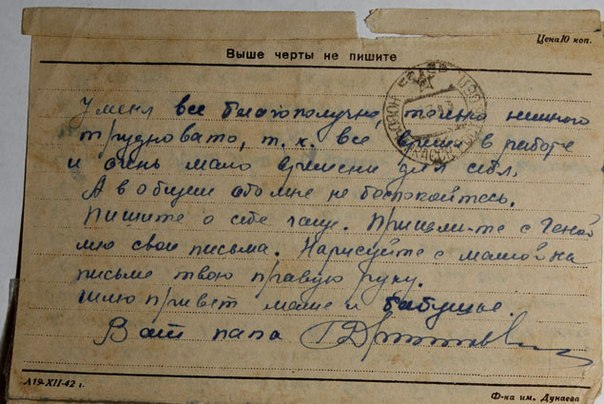 Цена 10 коп.
Выше черты не пишите
У меня все благополучно, только немного
трудновато, т. к. все время в работе
и очень мало времени для себя.
А в общем обо мне не беспокойтесь.
Пишите о себе чаще. Пришли-те с Геной
мю свои письма. Нарисуйте с мамой на
письме твою правую руку.
Шлю привет маме и бабушке.
Ваш папа
А19-XII-42 г.
Ф-ка им. Дунаева